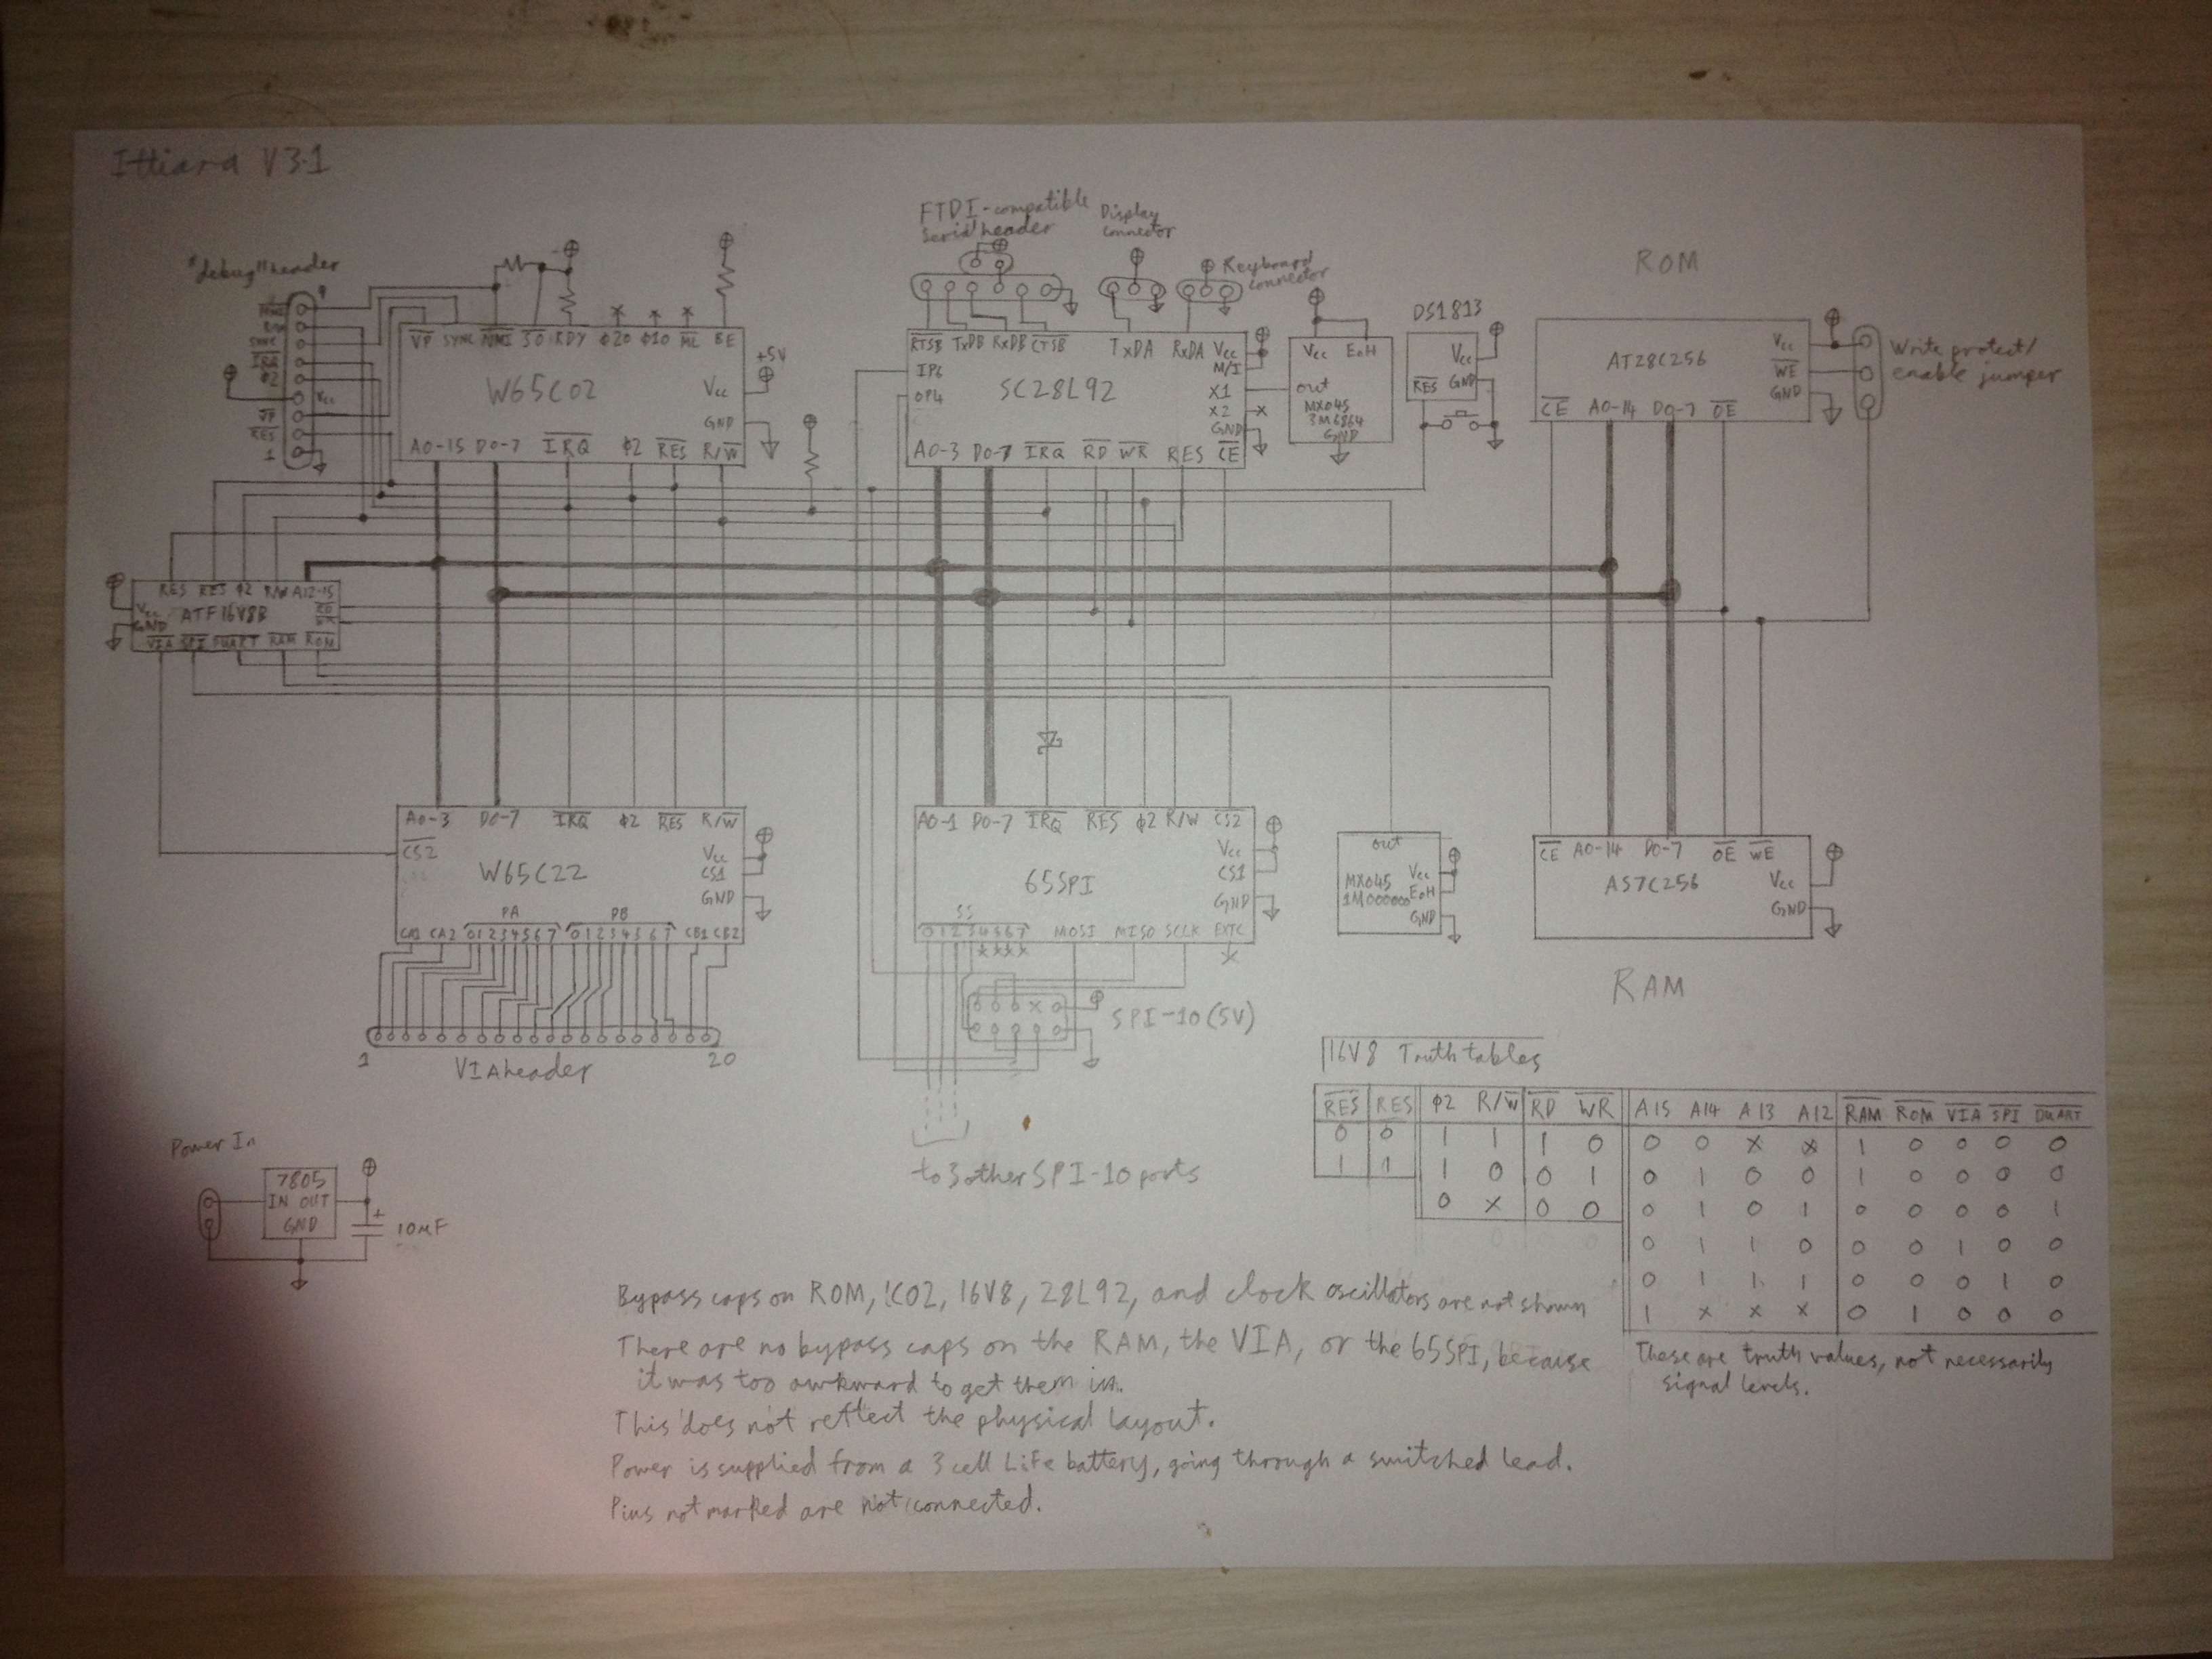 Ittiara V3.1
FTDI-compatible
serial header
Display
connector
Keyboard
connector
"debug" header
NMI
R/W
SYNC
IRQ
Φ2
Vcc
VP
RES
1
9
VP SYNC NMI SO RDY Φ2O Φ1O ML BE
W65C02
+5V
Vcc
GND
A0-15 D0-7 IRQ Φ2 RES R/W
RTSB TxDB RxDB CTSB TxDA RxDA Vcc
M/I
IP6
OP4
SC28L92
X1
X2
GND
A0-3 D0-7 IRQ RD WR RES CE
Vcc EoH
out
MX045
3M6864
GND
DS1813
Vcc
RES GND
ROM
AT28C256
Vcc
WE
GND
CE A0-14 D0-7 OE
Write protect/
enable jumper
RES RES Φ2 R/W A12-15
Vcc
GND
ATF16V8B
RD
WR
VIA SPI DUART RAM ROM
A0-3 D0-7 IRQ Φ2 RES R/W
CS2
W65C22
Vcc
CS1
GND
PA PB
CA1 CA2 01234567 01234567 CB1 CB2
1 20
VIA header
A0-1 D0-7 IRQ RES Φ2 R/W CS2
65SPI
Vcc
CS1
GND
SS
01234567 MOSI MISO SCLK EXTC
SPI-10 (5V)
to 3 other SPI-10 ports
out
MX045
1M000000
Vcc
EoH
GND
CE A0-14 D0-7 OE WE
AS7C256
Vcc
GND
RAM
Power In
7805
IN OUT
GND
+
10µF
16V8 Truth tables
RES RES Φ2 R/W RD WR A15 A14 A13 A12 RAM ROM VIA SPI DUART
0 0 1 1 1 0 0 0 X X 1 0 0 0 0
1 1 1 0 0 1 0 1 0 0 1 0 0 0 0
0 X 0 0 0 1 0 1 0 0 0 0 1
0 1 1 0 0 0 1 0 0
0 1 1 1 0 0 0 1 0
1 X X X 0 1 0 0 0
These are truth values, not necessarily
signal levels.
Bypass caps on ROM, 'C02, 16V8, 28L92, and clock oscillators are not shown
There are no bypass caps on the RAM, the VIA, or the 65SPI, because
it was too awkward to get them in.
This does not reflect the physical layout.
Power is supplied from a 3 cell LiFe battery, going through a switched lead.
Pins not marked are not connected.